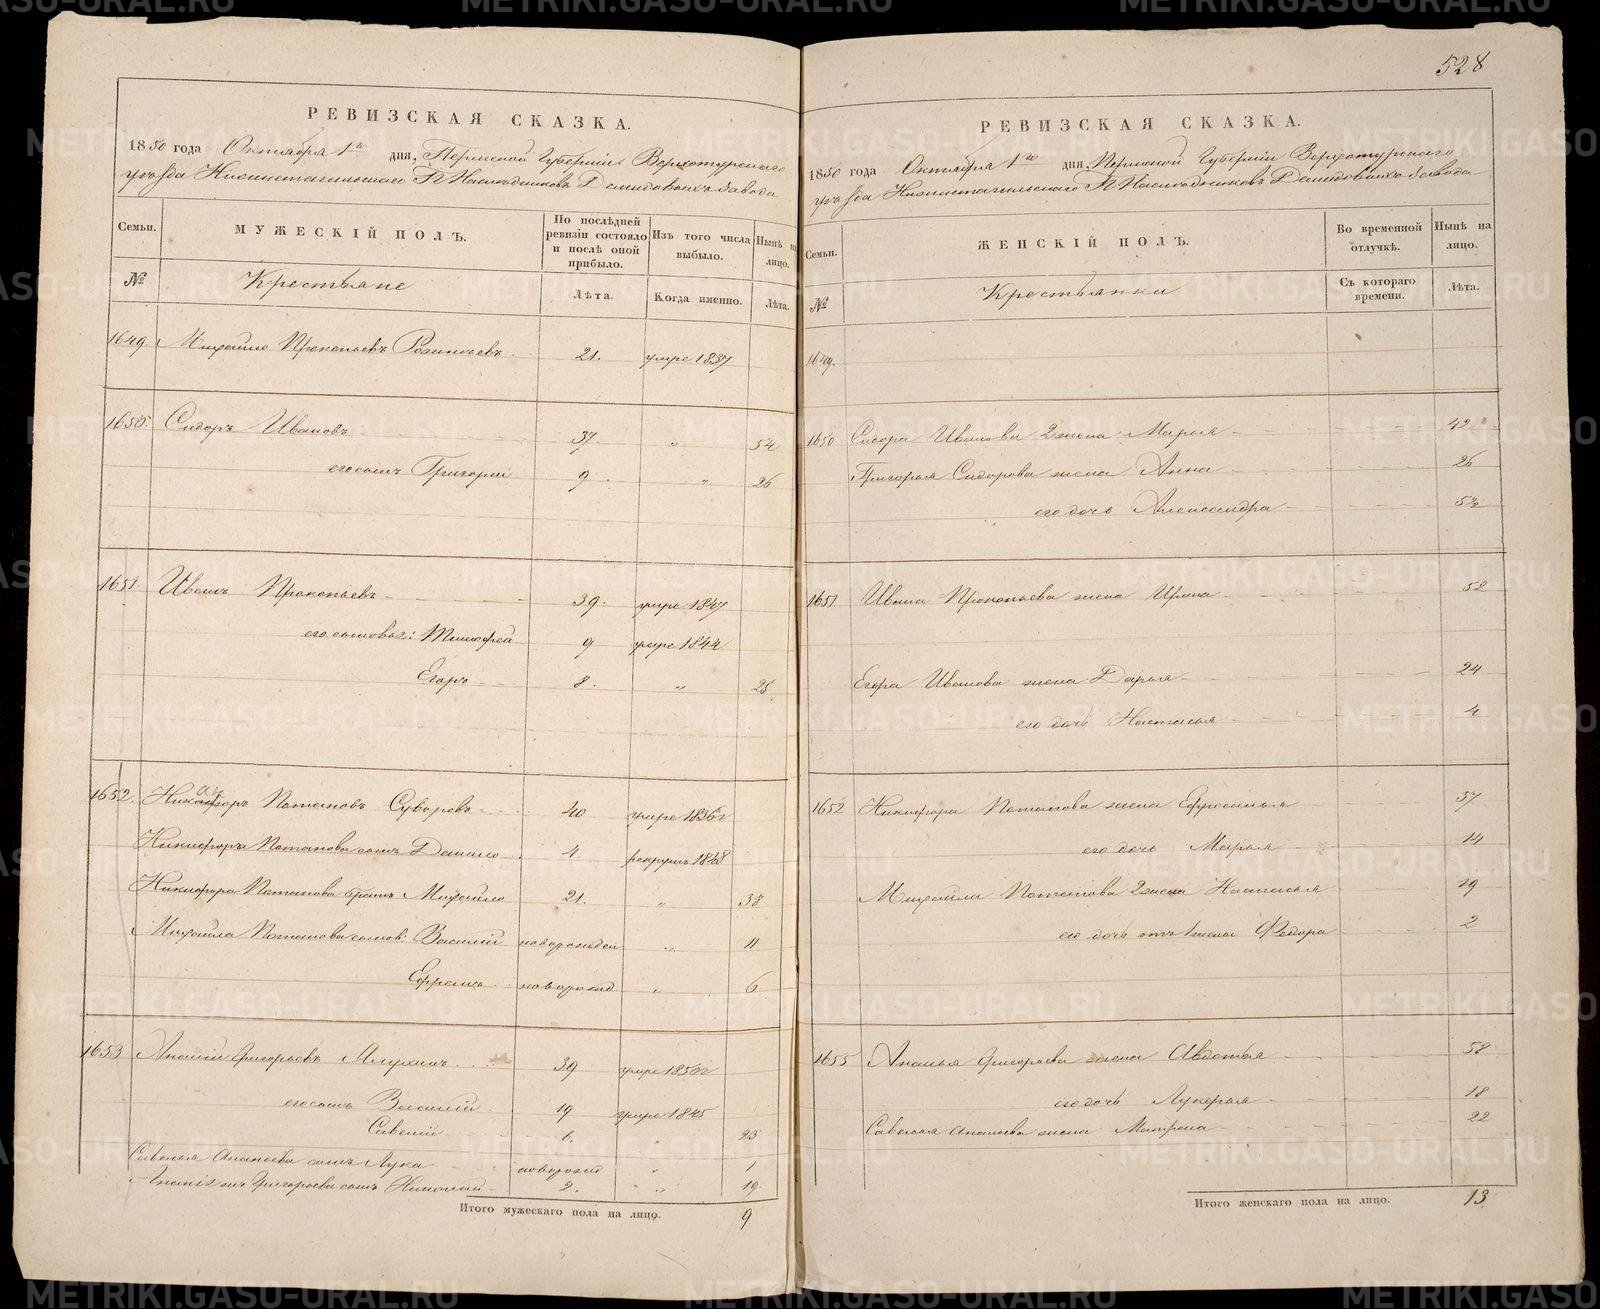 528
РЕВИЗСКАЯ СКАЗКА.
1850 года Октября 1го дня, Пермской Губернiи Верхотурскаго
уѣзда Нижнетагильскаго Гг Наслѣдниковъ Демидовыхъ завода
Семьи. МУЖЕСКІЙ ПОЛЪ. По послѣдней ревизіи состояло и послѣ оной прибыло. Изъ того числа выбыло. Нынѣ на лицо.
№ Крестьяне Лѣта. Когда именно. Лѣта.
1649 Михайло Прокопьевъ 21. умре 1837
1650 Сидоръ Ивановъ 37. „ 54
его сынъ Григорій 9 „ 26
1651 Иванъ Прокопьевъ 39. умре 1847
его сыновья: Тимофей 9 умре 1844
Егоръ 8. „ 25
1652. Никифоръ Потаповъ Суворовъ 40 умре 1836г
Никифора Потапова сынъ Данило 4. рекрутъ 1848
Никифора Потапова братъ Михайло 21. „ 38
Михайла Потапова сынов: Василій новорожден „ 11
Ефремъ новорожд „ 6
1653 Ананій Григорьевъ 39 умре 1850г
его сынъ Василій 19 умре 1845
Савелій 6. „ 23
Савелья Ананьева сынъ Лука новорожд „ 1
Григорьева сынъ Николай 2. „ 19
Итого мужескаго пола на лицо. 9
РЕВИЗСКАЯ СКАЗКА.
1850 года Октября 1го дня, Пермской Губернiи Верхотурскаго
уѣзда Нижнетагильскаго Гг Наслѣдниковъ Демидовыхъ завода
Семьи. ЖЕНСКІЙ ПОЛЪ. Во временной отлучкѣ. Нынѣ на лицо.
№ Крестьянки Съ котораго времени. Лѣта.
1649.
1650 Сидора Иванова 2 жена Марья 42
Григорья Сидорова жена Анна 26
его дочь Александра 5½
1651 Ивана Прокопьева жена Ирина 52
Егора Иванова жена Дарья 24
его дочь Настасья 4
1652 Никифора Потапова жена Ефросинья 57
его дочь Марья 14
Михайла Потапова 2 жена Настасья 29
его дочь отъ 1 жены Федора 2
1653 Ананья Григорьева жена Авдотья 58
его дочь Лукерья 18
Савелья Ананьева жена Матрена 22
Итого женскаго пола на лицо. 13
METRIKI.GASO-URAL.RU